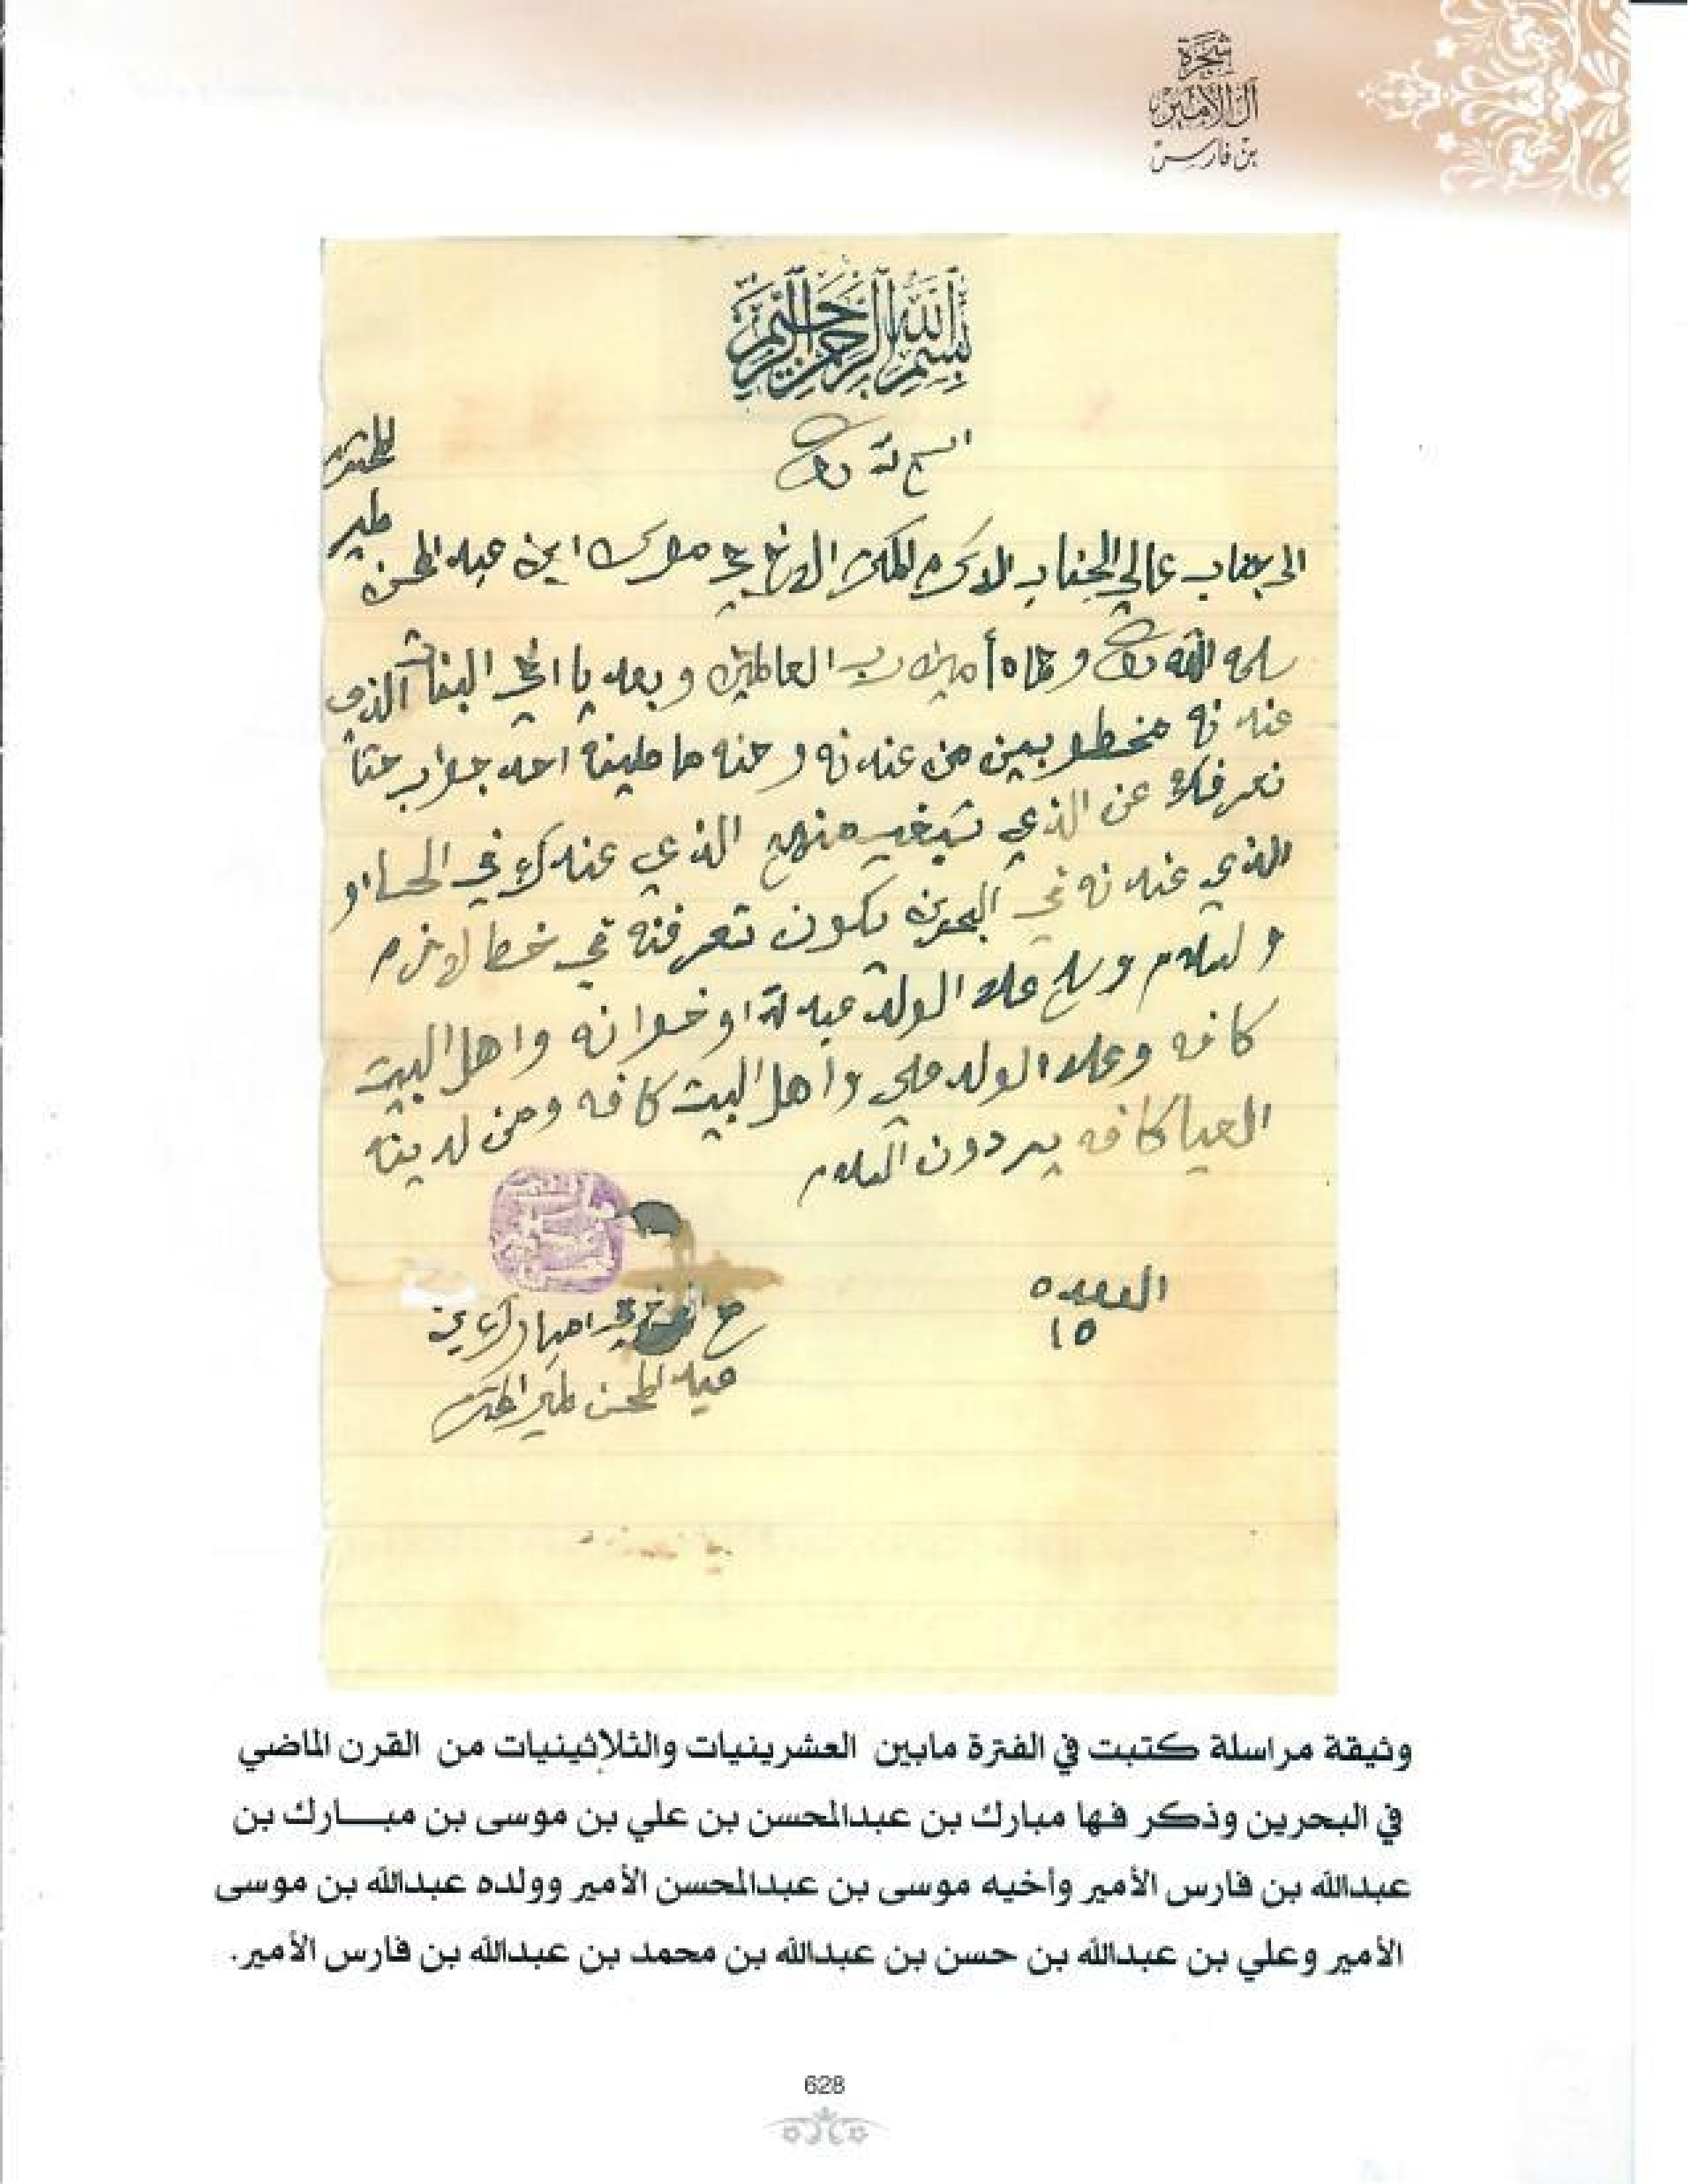 شجرة
آل الأمير
بن فارس
بسم الله الرحمن الرحيم
المحترم
الى جناب عالي الجناب الاكرم المكرم الاخ موسى ابن عبد المحسن
سلمه الله تعالى أمين رب العالمين وبعد يا اخي البنات الذي
عندنه مخطوبين من عندنه وحنه ما عطينه احد جواب حتا
نعرفك عن الذي تبغيه منهم الذي عندك في الحسا او
الذي عندنه في البحرين يكون تعرفنه في خط لازم
والسلام وسلم علا الولد عبدلله اوخوانه واهل البيت
كافه وعلا الولد علي واهل البيت كافه ومن لدينه
العيا كافه يردون السلام
القعده
١٥
الاخ امبارك بن
عبد المحسن
وثيقة مراسلة كتبت في الفترة مابين العشرينيات والثلاثينيات من القرن الماضي
في البحرين وذكر فها مبارك بن عبدالمحسن بن علي بن موسى بن مبــارك بن
عبدالله بن فارس الأمير وأخيه موسى بن عبدالمحسن الأمير وولده عبدالله بن موسى
الأمير وعلي بن عبدالله بن حسن بن عبدالله بن محمد بن عبدالله بن فارس الأمير.
628